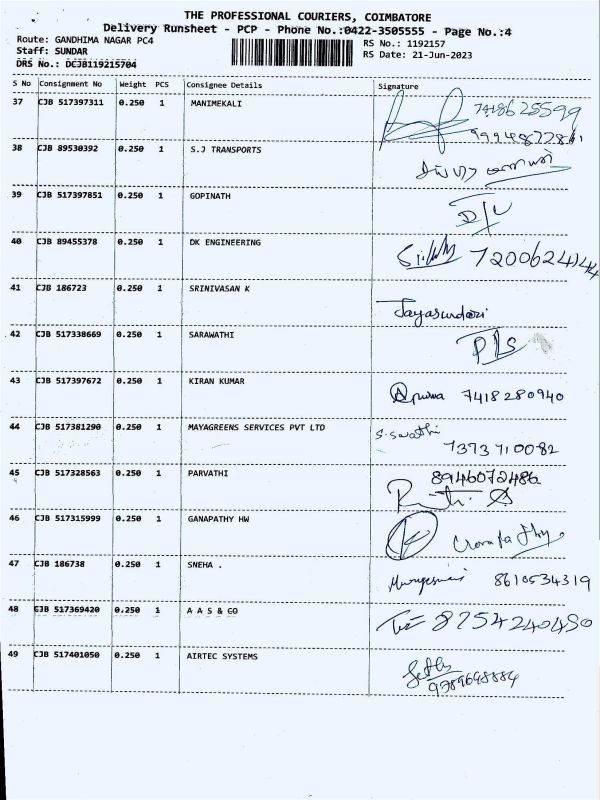 THE PROFESSIONAL COURIERS, COIMBATORE
Delivery Runsheet - PCP - Phone No.:0422-3505555 - Page No.:4
Route: GANDHIMA NAGAR PC4 RS No.: 1192157
Staff: SUNDAR RS Date: 21-Jun-2023
DRS No.: DCJB119215704
S No Consignment No Weight PCS Consignee Details Signature
37 CJB 517397311 0.250 1 MANIMEKALI 7418625599
38 CJB 89530392 0.250 1 S.J TRANSPORTS
39 CJB 517397851 0.250 1 GOPINATH
40 CJB 89455378 0.250 1 DK ENGINEERING
41 CJB 186723 0.250 1 SRINIVASAN K Jayasundari
42 CJB 517338669 0.250 1 SARAWATHI
43 CJB 517397672 0.250 1 KIRAN KUMAR 7418280940
44 CJB 517381290 0.250 1 MAYAGREENS SERVICES PVT LTD S.Swathi
7373710082
45 CJB 517328563 0.250 1 PARVATHI 8946072486
46 CJB 517315999 0.250 1 GANAPATHY HW
47 CJB 186738 0.250 1 SNEHA . 8610534319
48 CJB 517369420 0.250 1 A A S & CO 8754240450
49 CJB 517401050 0.250 1 AIRTEC SYSTEMS
9789698884